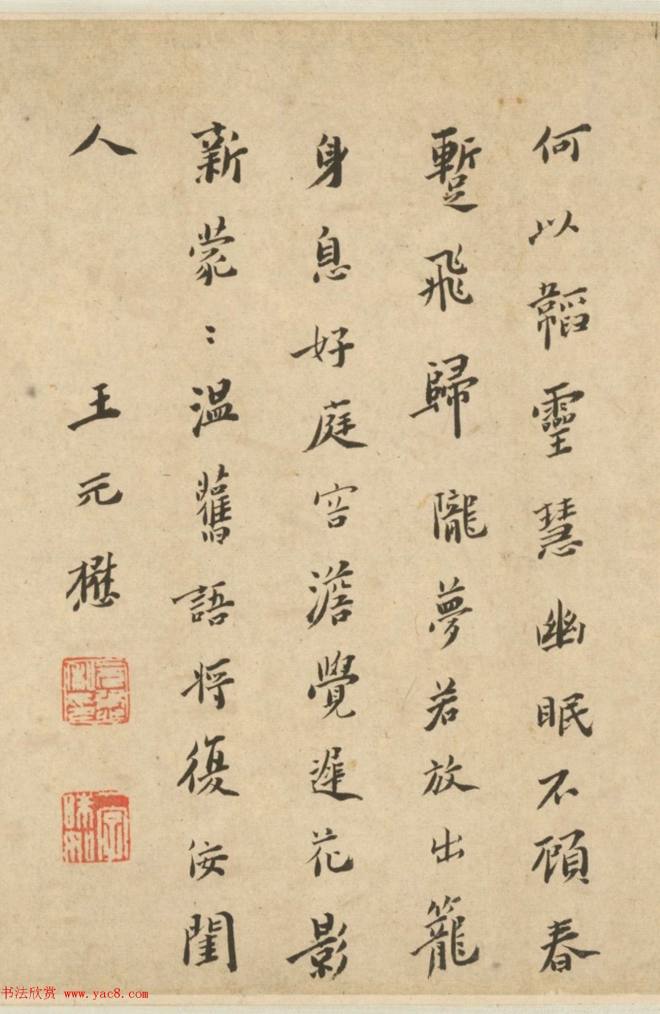 何以韜靈慧幽眠不顧春
蹔飛歸隴夢若放出籠
身息好庭容澹覺遲花影
新蒙〻温舊語將復佞閨
人
王元懋
书法欣赏 www.yac8.com